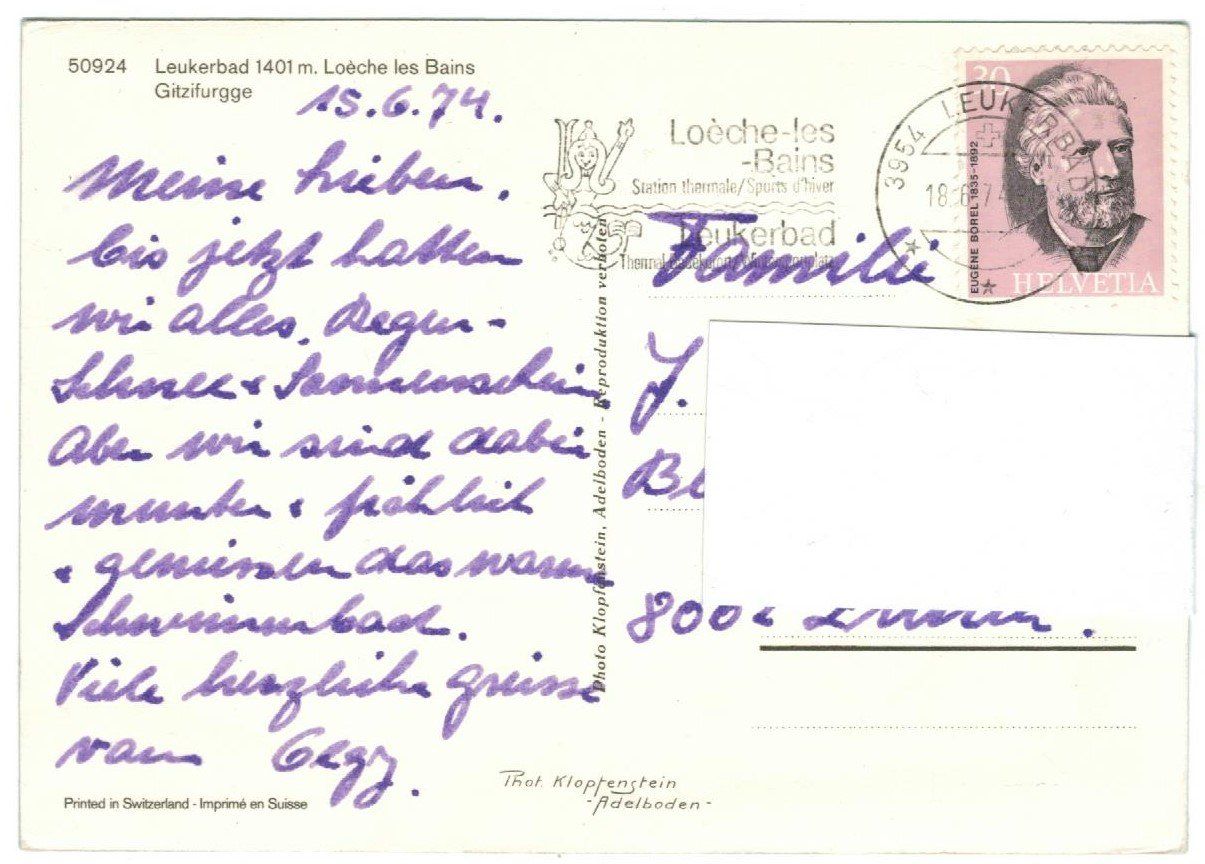 50924 Leukerbad 1401 m. Loèche les Bains
Gitzifurgge
15.6.74.
Meine Lieben,
bis jetzt hatten
wir alles, Regen-
Schnee + Sonnenschein,
Aber wir sind dabei
munter + fröhlich
+ geniessen das warme
Schwimmbad.
Viele herzliche Grüsse
vom
Printed in Switzerland - Imprimé en Suisse
Photo Klopfenstein, Adelboden - Reproduktion verboten
Phot. Klopfenstein
-Adelboden-
Loèche-les
-Bains
Station thermale/Sports d'hiver
Leukerbad
3954 LEUKERBAD
18.6.74
30
EUGÈNE BOREL 1835-1892
HELVETIA
Familie
J.
800